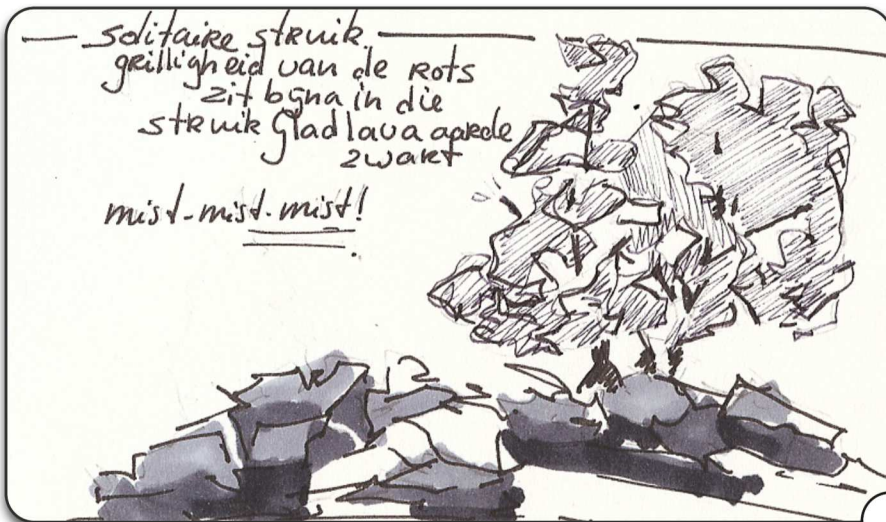 solitaire struik
grilligheid van de rots
zit bijna in die
struik Glad lava aarde
zwart
mist-mist-mist!